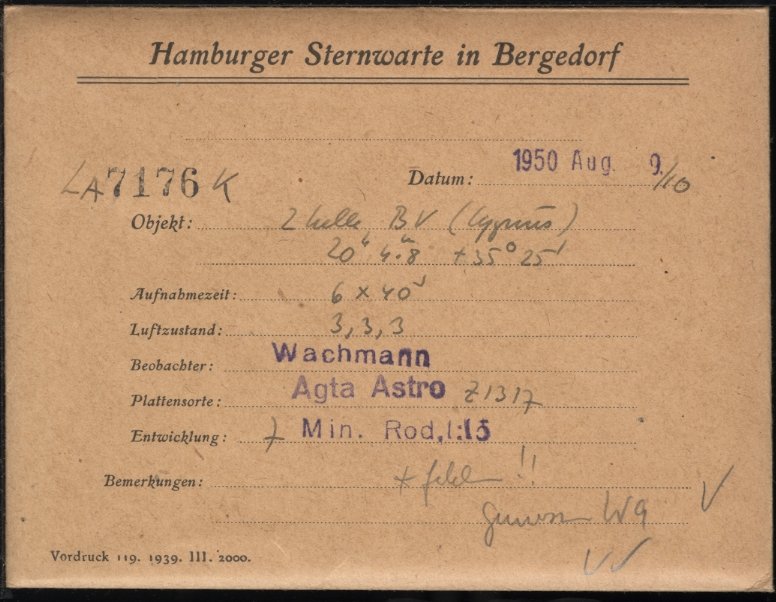 Hamburger Sternwarte in Bergedorf
LA 7176 K Datum: 1950 Aug. 9./10
Objekt: 2 helle BV (Cygnus)
20ʰ 4.ᵐ8 +35° 25'
Aufnahmezeit: 6 x 40
Luftzustand: 3, 3, 3
Beobachter: Wachmann
Plattensorte: Agta Astro Z1317
Entwicklung: 7 Min. Rod, 1:15
Bemerkungen: !!
W9 V
Vordruck 119. 1939. III. 2000.